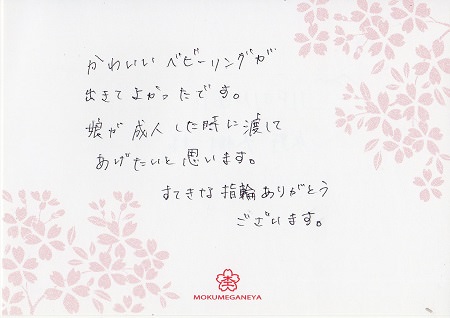 かわいいベビーリングが
出きてよかったです。
娘が成人した時に渡して
あげたいと思います。
すてきな指輪ありがとう
ございます。
MOKUMEGANEYA